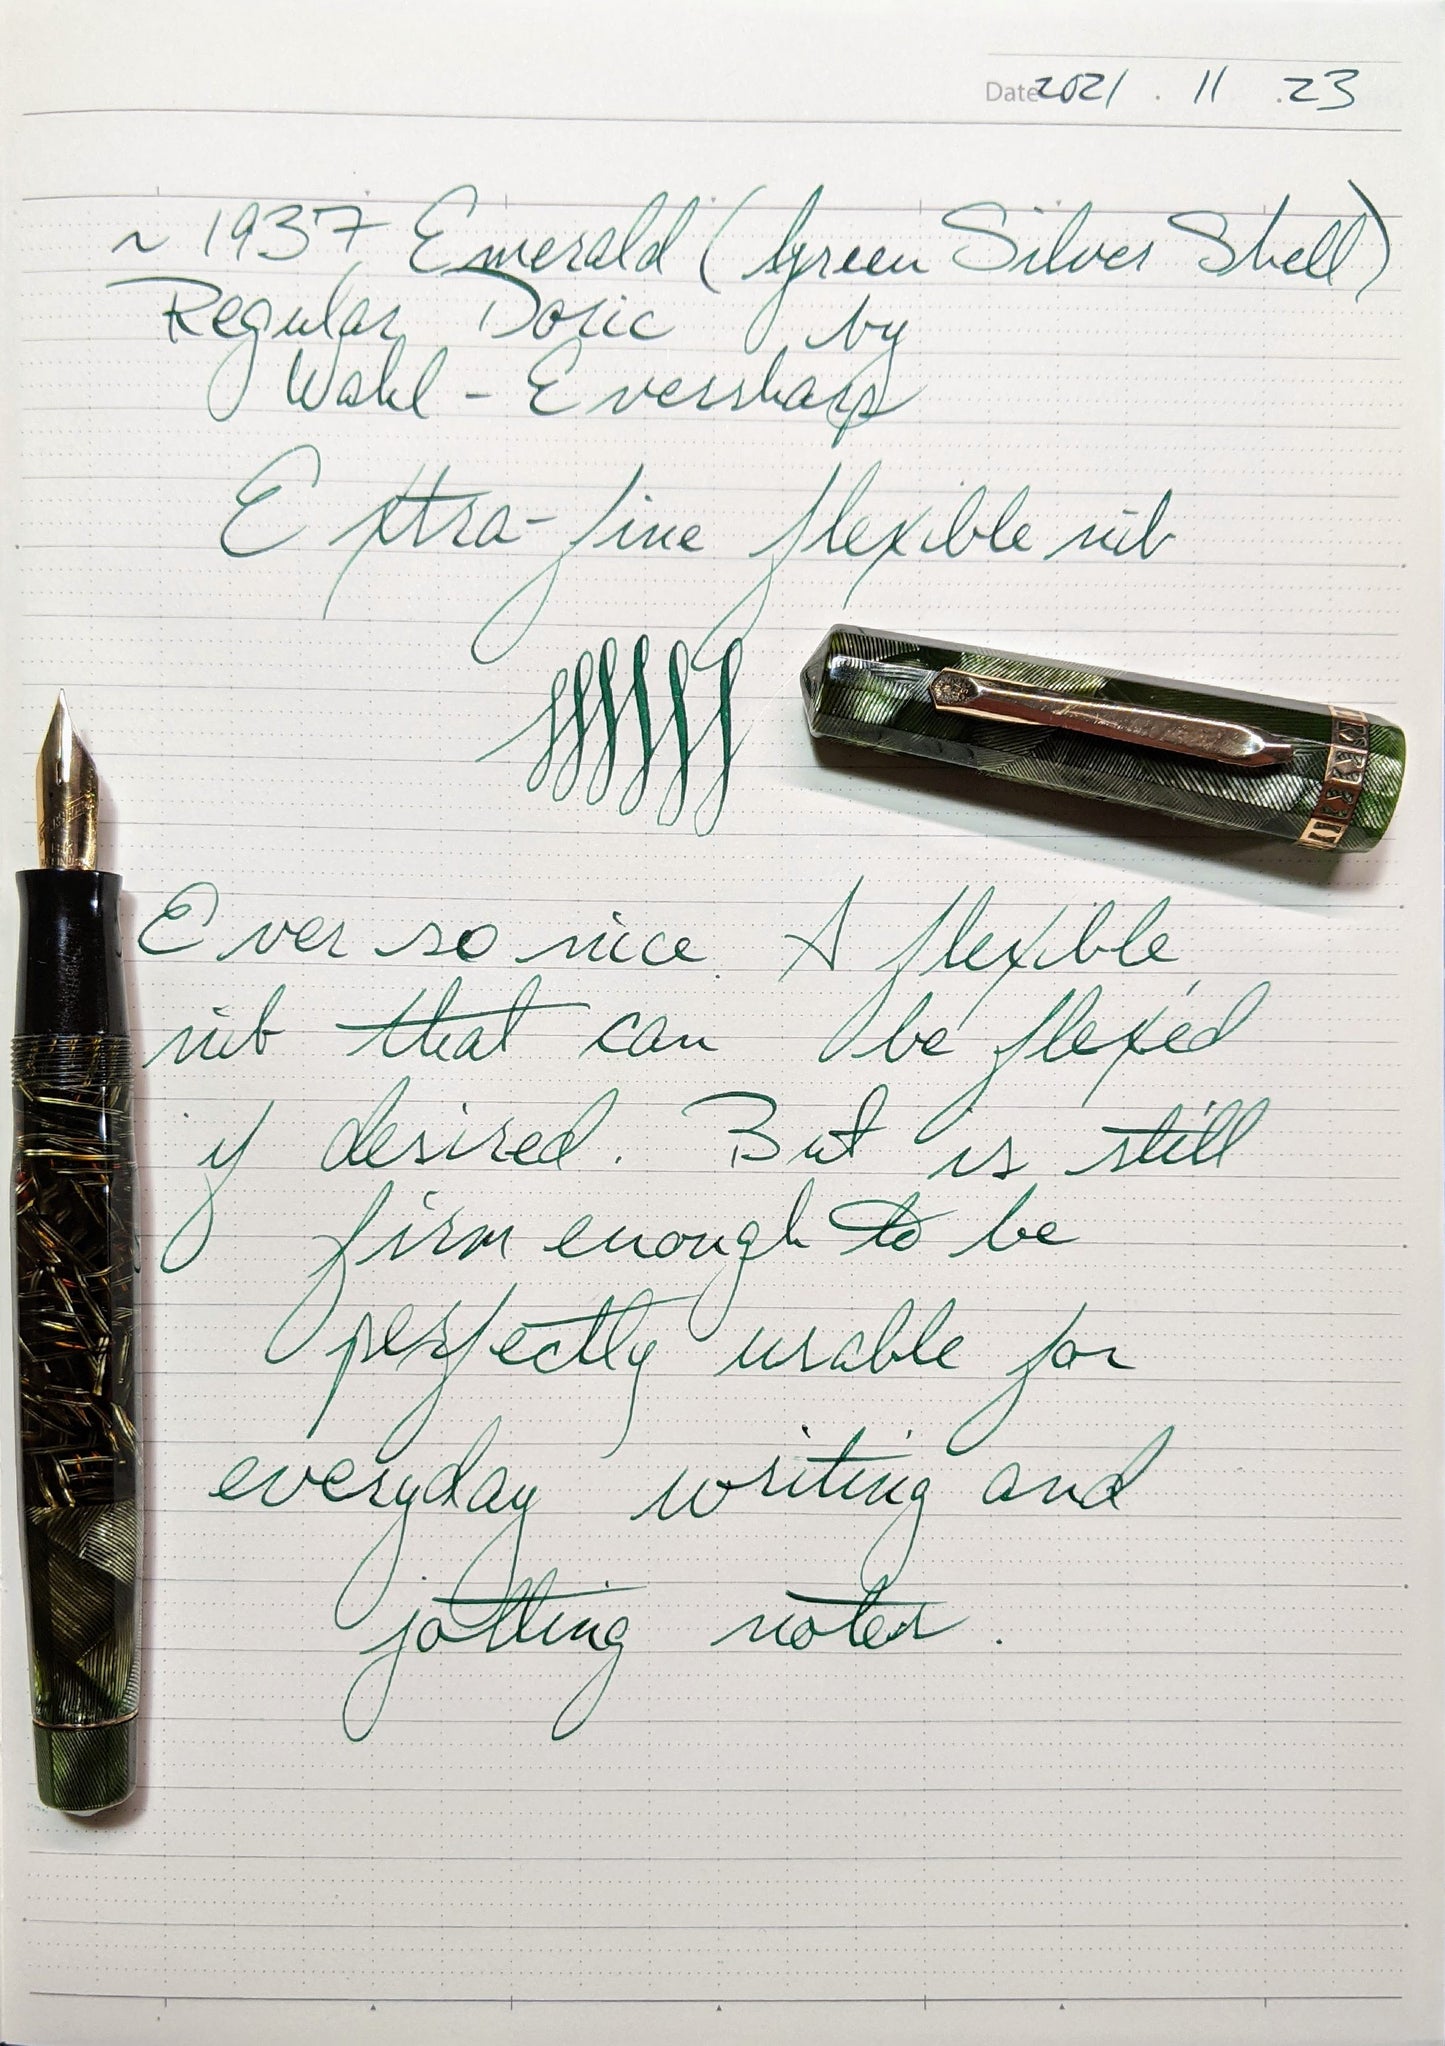 Date 2021 . 11 . 23
~ 1937 Emerald (Green Silver Shell)
Regular Doric by
Wahl - Eversharp
Extra-fine flexible nib
Ever so nice. A flexible
nib that can be flexed
if desired. But is still
firm enough to be
perfectly usable for
everyday writing and
jotting notes.